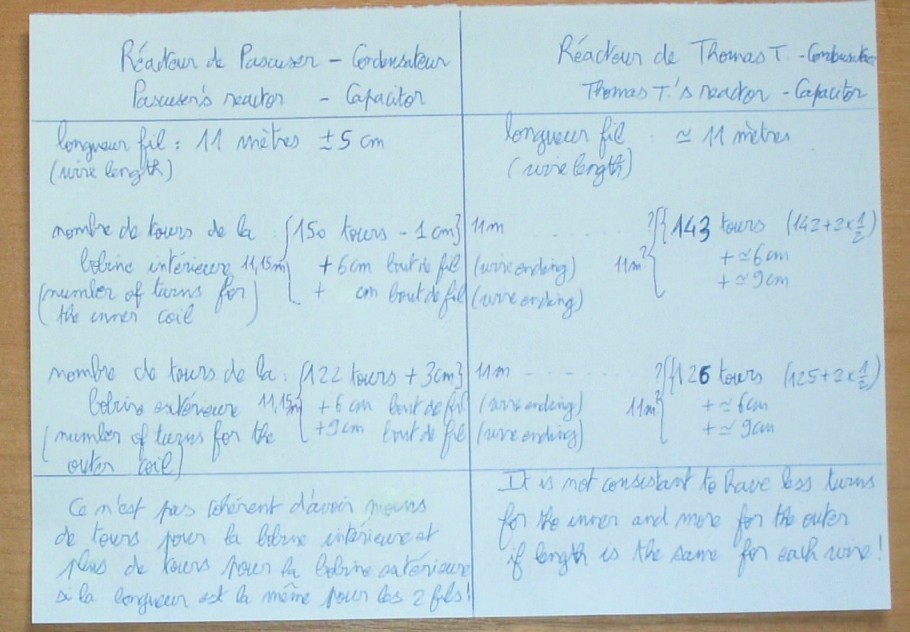 Réacteur de Pascuser - Condensateur
Pascuser's reactor - Capacitor
longueur fil : 11 mètres ± 5 cm
(wire length)
nombre de tours de la : {150 tours - 1 cm} 11m
bobine intérieure 11,15m { + 6cm bout de fil (wire ending)
(number of turns for + cm bout de fil (wire ending)
the inner coil)
nombre de tours de la : {122 tours + 3cm} 11m
bobine extérieure 11,15m { + 6 cm bout de fil (wire ending)
(number of turns for the + 9 cm bout de fil (wire ending)
outer coil)
Ce n'est pas cohérent d'avoir moins
de tours pour la bobine intérieure et
plus de tours pour la bobine extérieure
si la longueur est la même pour les 2 fils !
Réacteur de Thomas T. - Condensateur
Thomas T.'s reactor - Capacitor
longueur fil : ≃ 11 mètres
(wire length)
? {{ 143 tours (142+2x½)
11m? { + ≃ 6cm
+ ≃ 9cm
? {{ 126 tours (125+2x½)
11m? { + ≃ 6cm
+ ≃ 9cm
It is not consistant to have less turns
for the inner and more for the outer
if length is the same for each wire !